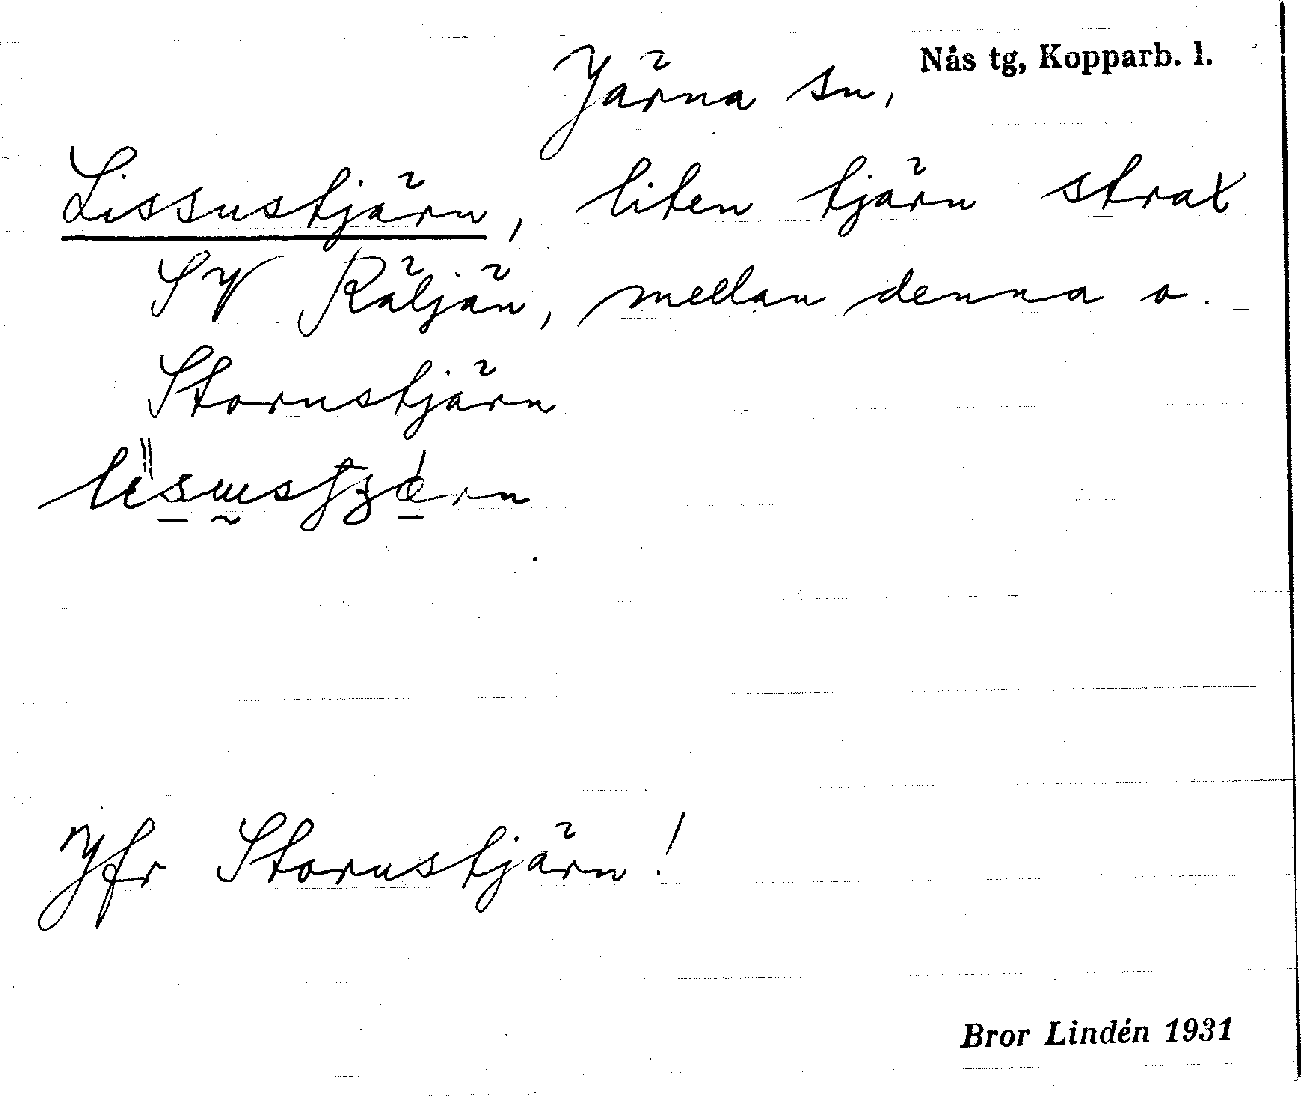 Nås tg, Kopparb. l.
Järna sn,
Lissustjärn, liten tjärn strax
SV Räljän, mellan denna o.
Stornstjärn
Jfr Stornstjärn!
Bror Lindén 1931